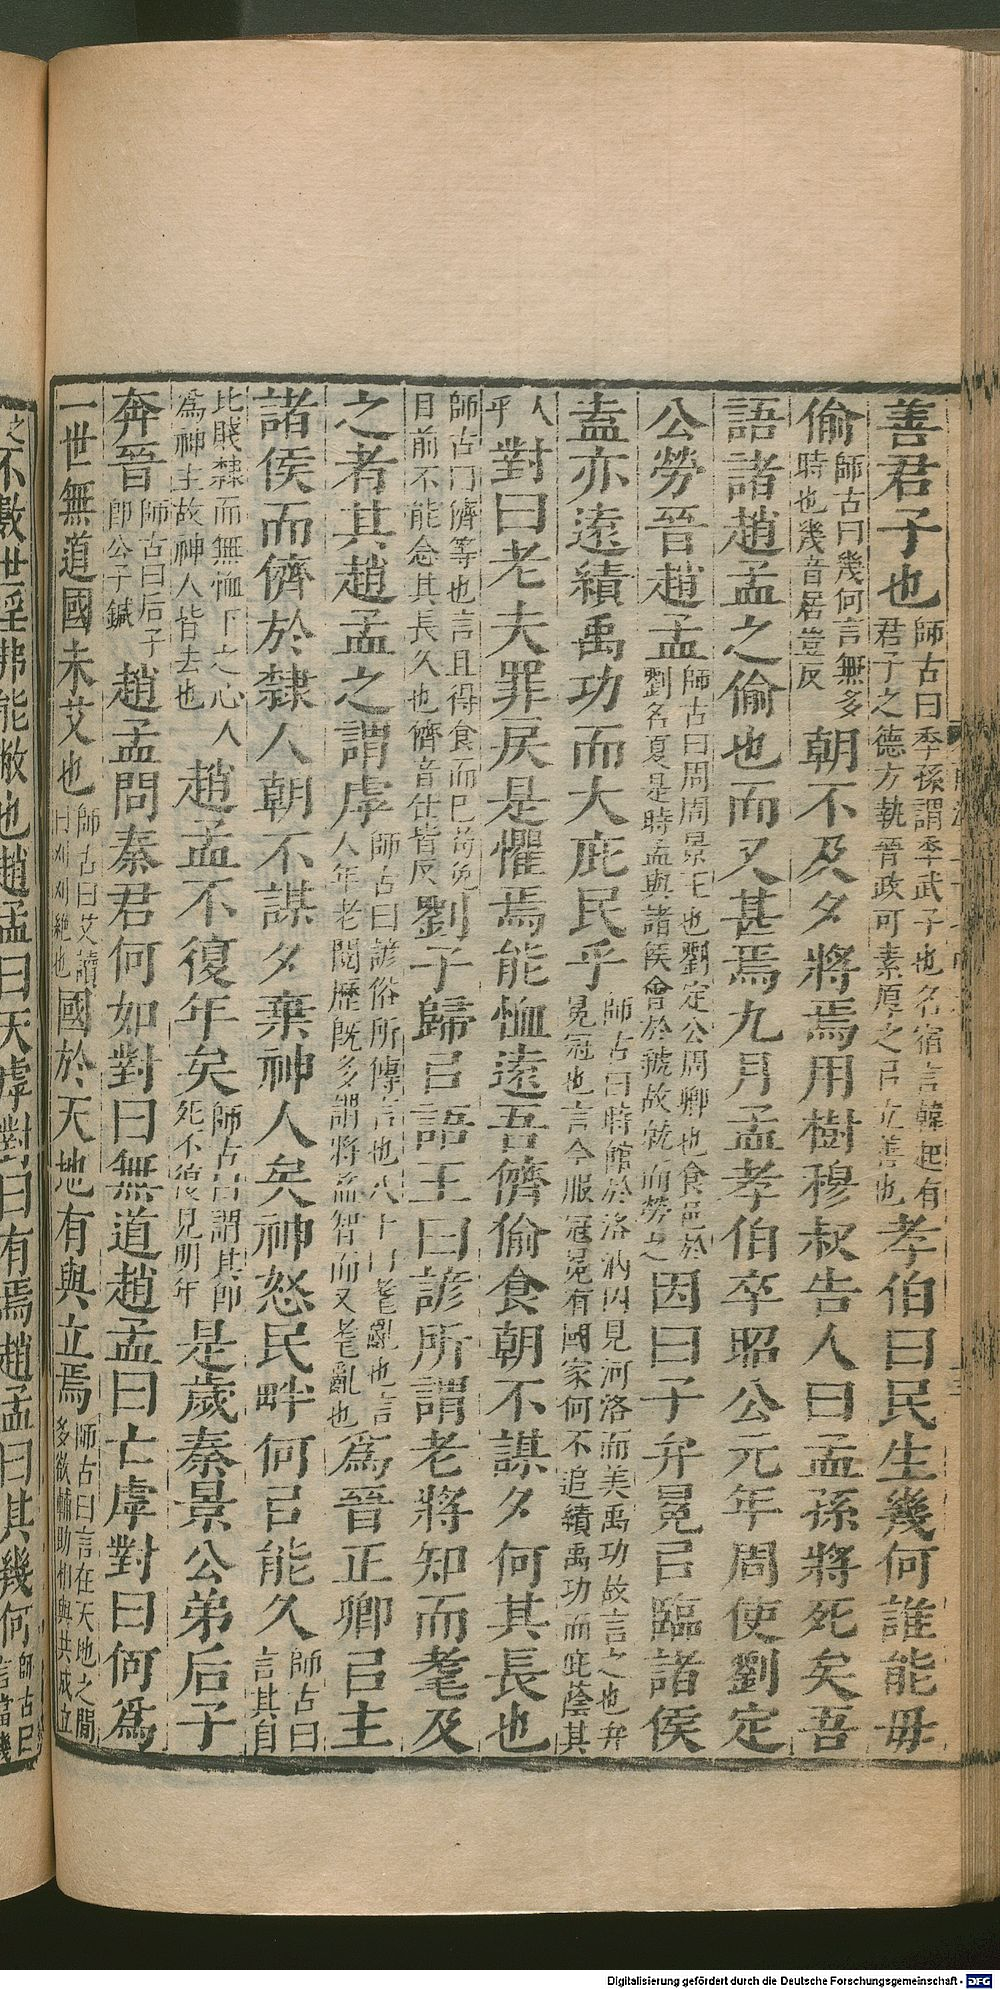 善君子也師古曰季孫謂季武子也名宿言韓起有君子之德方執晉政可素厚之㠯立善也孝伯曰民生幾何誰能毋
偷師古曰幾何言無多時也幾音居豈反朝不及夕將焉用樹穆叔告人曰孟孫將死矣吾
語諸趙孟之偷也而又甚焉九月孟孝伯卒昭公元年周使劉定
公勞晉趙孟師古曰周周景王也劉定公周卿也食邑於劉名夏是時孟與諸侯會於虢故就而勞之因曰子弁冕㠯臨諸侯
盍亦遠績禹功而大庇民乎師古曰時館於洛汭因見河洛而美禹功故言之也弁冕冠也言今服冠冕有國家何不追績禹功而庇蔭其
人乎對曰老夫罪戾是懼焉能恤遠吾儕偷食朝不謀夕何其長也
師古曰儕等也言且得食而已苟免目前不能念其長久也儕音仕皆反劉子歸㠯語王曰諺所謂老將知而耄及
之者其趙孟之謂虖師古曰諺俗所傳言也八十曰耄亂也言人年老閱歷既多謂將益智而又耄亂也爲晉正卿㠯主
諸侯而儕於隸人朝不謀夕棄神人矣神怒民畔何㠯能久師古曰言其自
比賤隸而無恤下之心人爲神主故神人皆去也趙孟不復年矣師古曰謂其即死不復見明年是歲秦景公弟后子
奔晉師古曰后子即公子鍼趙孟問秦君何如對曰無道趙孟曰亡虖對曰何爲
一世無道國未艾也師古曰艾讀曰刈刈絕也國於天地有與立焉師古曰言在天地之間多欲輔助相與共成立
之不數世淫弗能敝也趙孟曰天虖對曰有焉趙孟曰其幾何師古曰言當幾
Digitalisierung gefördert durch die Deutsche Forschungsgemeinschaft - DFG